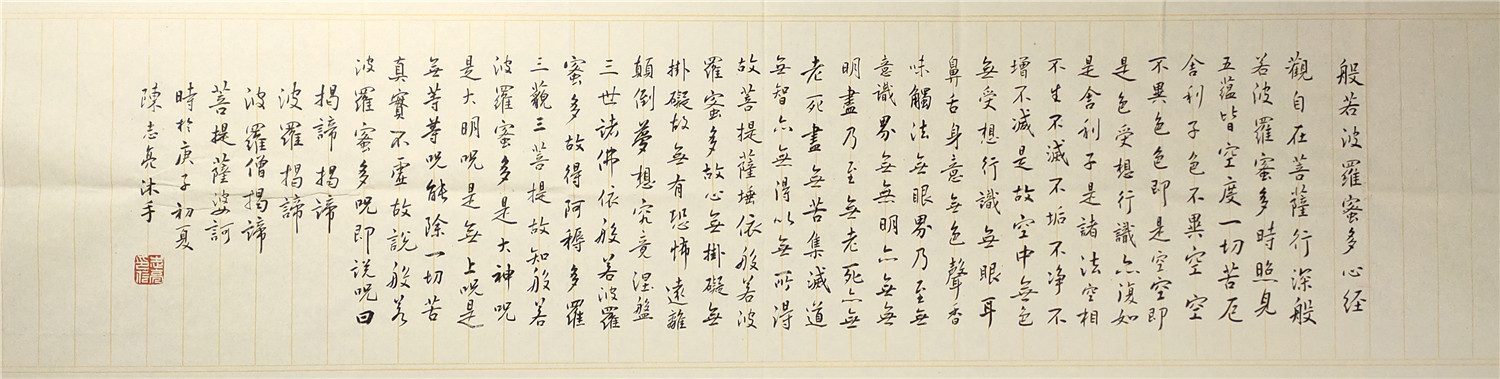 般若波羅蜜多心经
觀自在菩薩行深般
若波羅蜜多時照見
五蕴皆空度一切苦厄
舍利子色不異空空
不異色色即是空空即
是色受想行識亦復如
是舍利子是諸法空相
不生不滅不垢不净不
增不减是故空中無色
無受想行識無眼耳
鼻舌身意無色聲香
味觸法無眼界乃至無
意識界無無明亦無無
明盡乃至無老死亦無
老死盡無苦集滅道
無智亦無得以無所得
故菩提薩埵依般若波
羅蜜多故心無掛礙無
掛礙故無有恐怖遠離
顛倒夢想究竟涅盤
三世諸佛依般若波羅
蜜多故得阿耨多羅
三藐三菩提故知般若
波羅蜜多是大神呪
是大明呪是無上呪是
無等等呪能除一切苦
真實不虚故說般若
波羅蜜多呪即說呪曰
揭諦揭諦
波羅揭諦
波羅僧揭諦
菩提薩婆訶
時於庚子初夏
陳志亮沐手